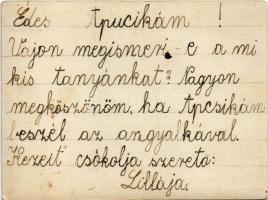 Édes Apucikám !
Vajon megismeri - e a mi
kis tanyánkat? Nagyon
megköszönöm, ha Apcsikám
beszél az angyalkával.
Kezeit csókolja szerető:
Lillája.